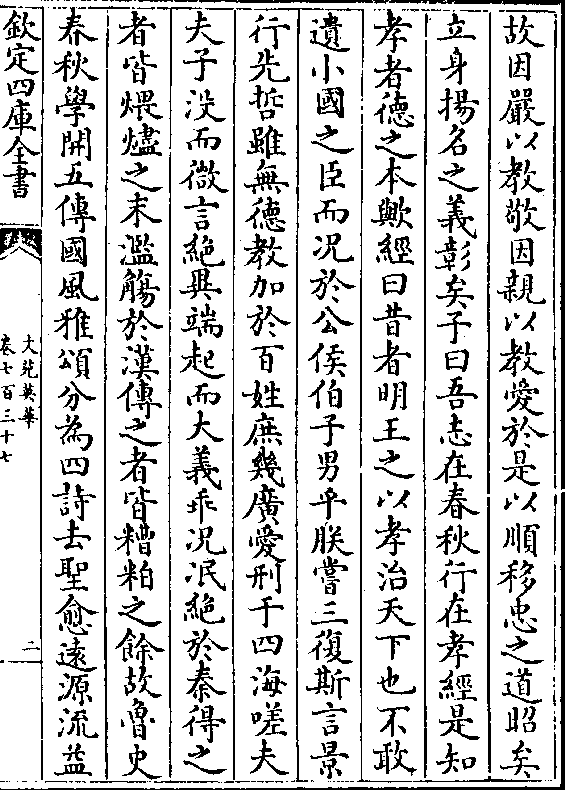 故因嚴以教敬因親以教愛於是以順移忠之道昭矣
立身揚名之義彰矣子曰吾志在春秋行在孝經是知
孝者德之本歟經曰昔者明王之以孝治天下也不敢
遺小國之臣而况於公侯伯子男乎朕嘗三復斯言景
行先哲雖無德教加於百姓庶幾廣愛刑于四海嗟夫
夫子没而微言絶異端起而大義乖况冺絶於秦得之
者皆煨燼之末濫觴於漢傳之者皆糟粕之餘故魯史
春秋學開五傳國風雅頌分為四詩去聖愈遠源流益
欽定四庫全書
文苑英華
卷七百三十七
二